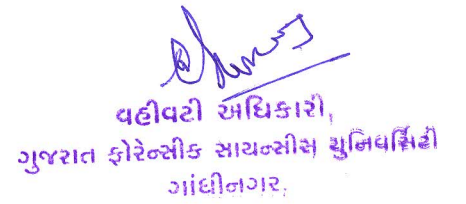 વહીવટી અધિકારી,
ગુજરાત ફોરેન્સીક સાયન્સીસ યુનિવર્સિટી
ગાંધીનગર.